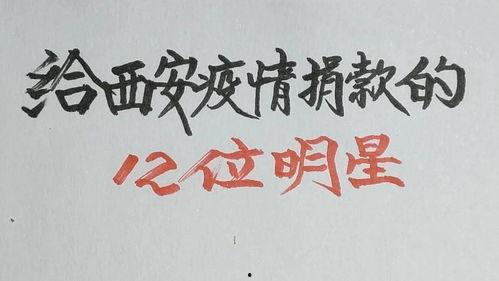 给西安疫情捐款的
12位明星